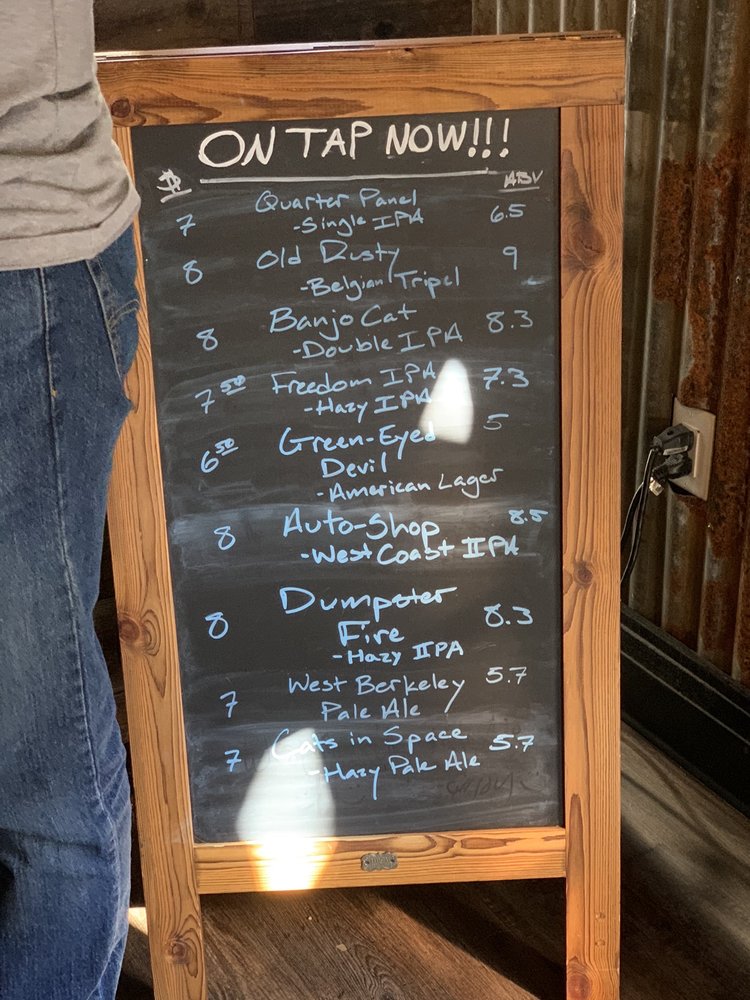 ON TAP NOW!!!
$ ABV
7 Quarter Panel 6.5
-Single IPA
8 Old Rusty 9
-Belgian Tripel
8 Banjo Cat 8.3
-Double IPA
7 50 Freedom IPA 7.3
-Hazy IPA
6 50 Green-Eyed 5
Devil
-American Lager
8 Auto-Shop 8.5
-West Coast IIPA
8 Dumpster 8.3
Fire
-Hazy IIPA
7 West Berkeley 5.7
Pale Ale
7 Cats in Space 5.7
-Hazy Pale Ale